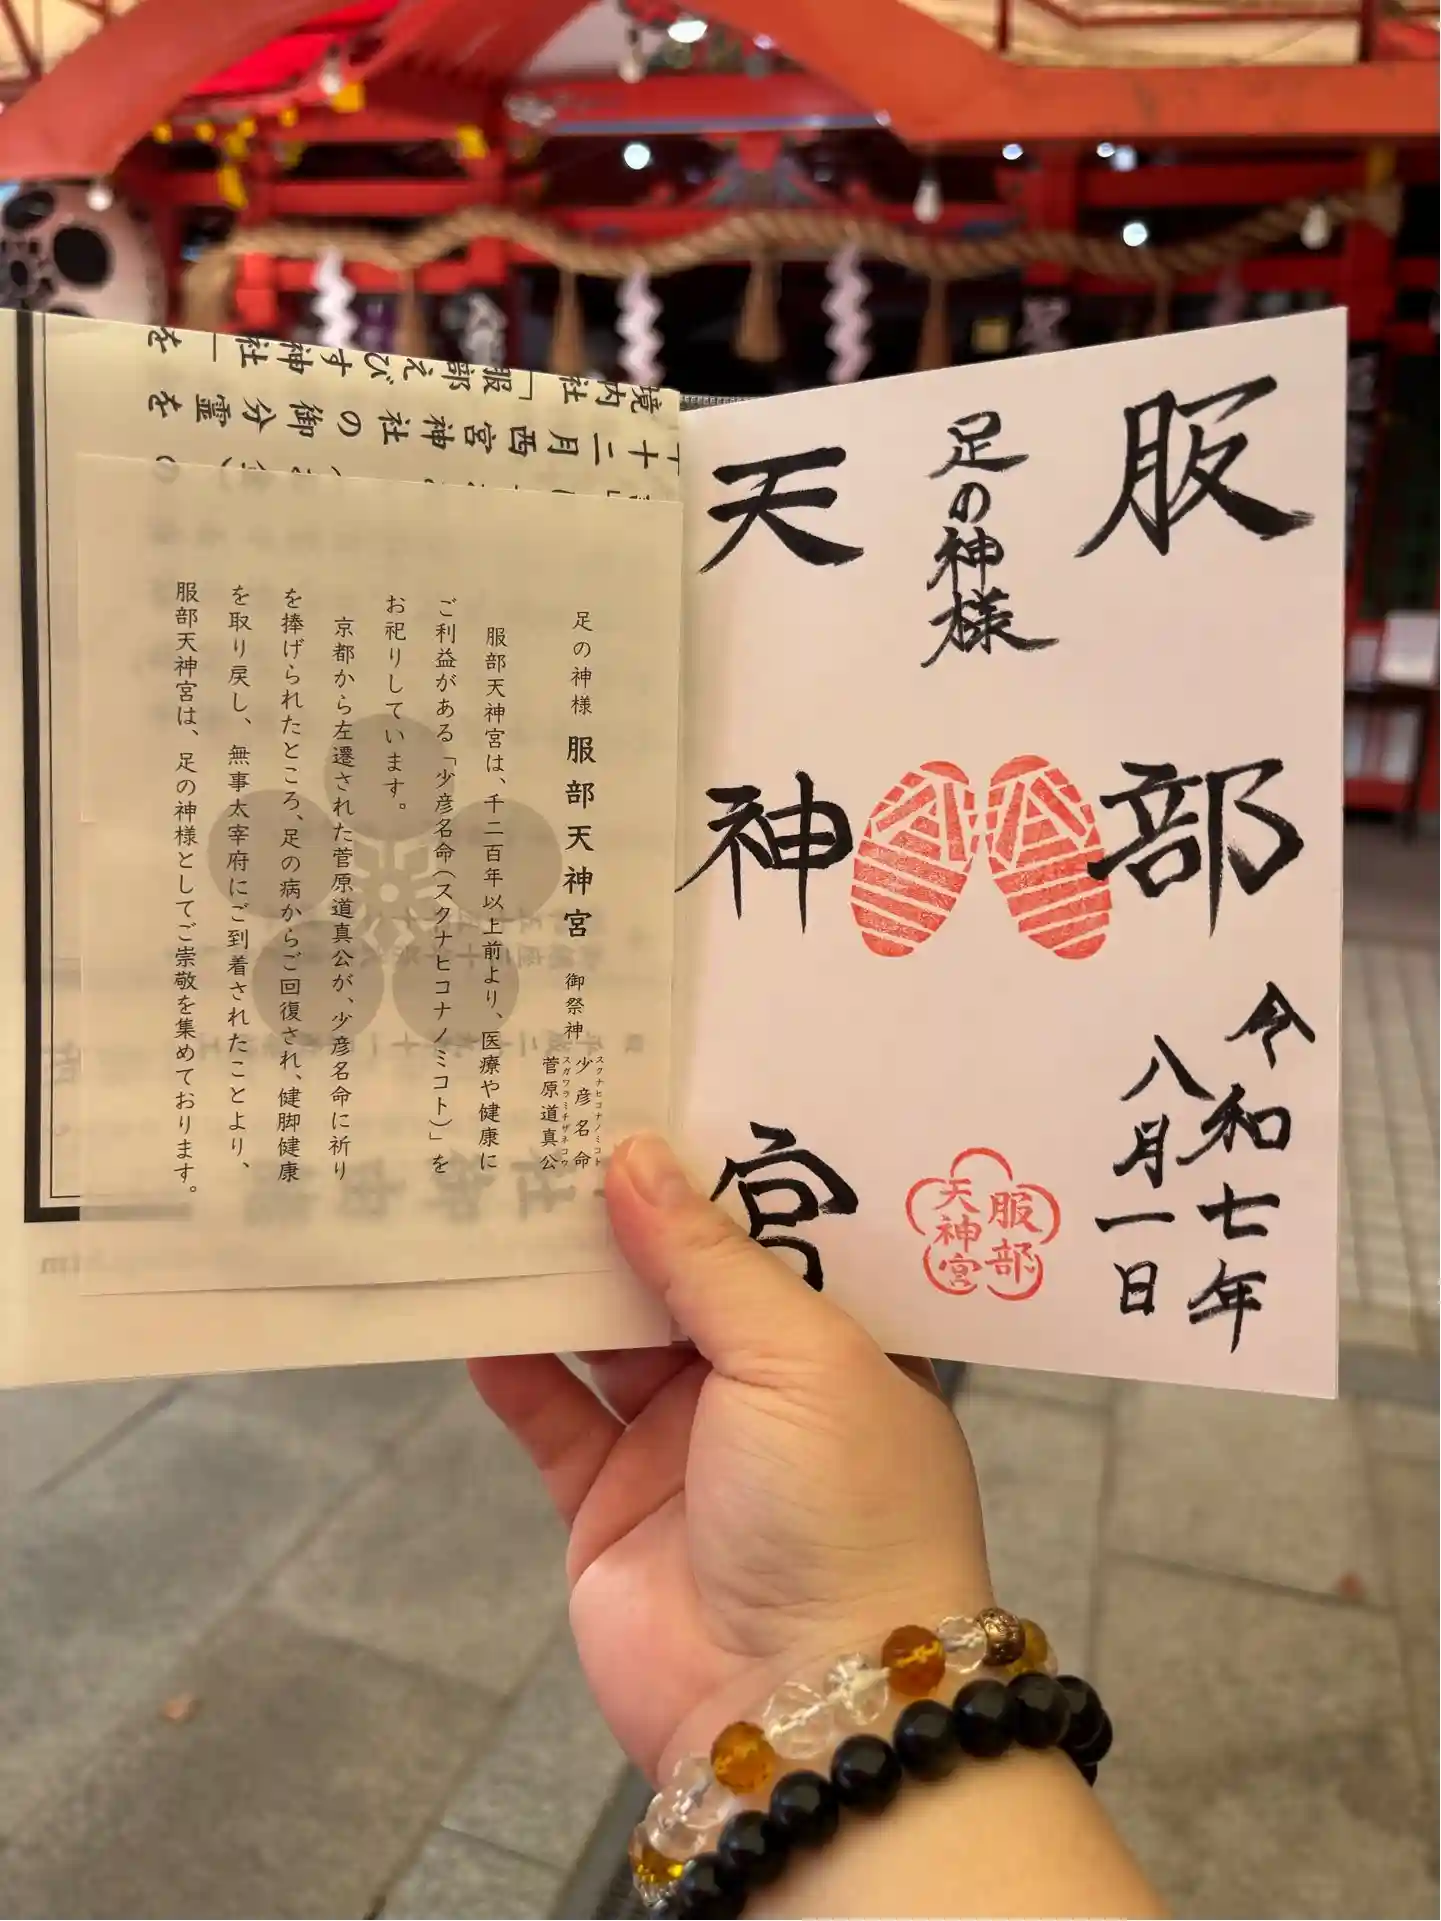 服部
足の神様
天神宮
令和七年
八月一日
服部
天神宮
足の神様 服部天神宮 御祭神 少彦名命 菅原道真公
スクナヒコナノミコト
スガワラミチザネコウ
服部天神宮は、千二百年以上前より、医療や健康に
ご利益がある「少彦名命(スクナヒコナノミコト)」を
お祀りしています。
京都から左遷された菅原道真公が、少彦名命に祈り
を捧げられたところ、足の病からご回復され、健脚健康
を取り戻し、無事太宰府にご到着されたことより、
服部天神宮は、足の神様としてご崇敬を集めております。
境内社「服部えびす神社」を
十二月西宮神社の御分霊を